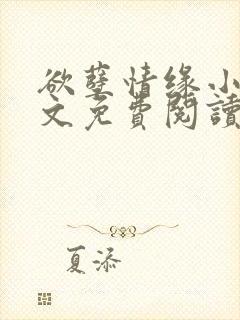 欲孽情缘小
文免費閱讀
夏添